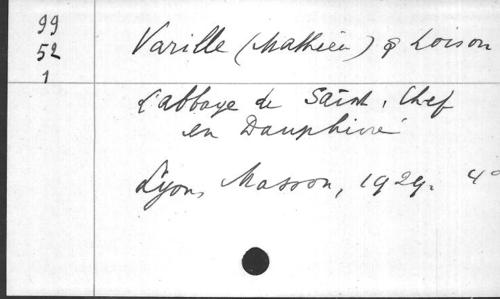 99
52
1
Varille (Mathieu) & Loison
L'abbaye de Saint, Chef
en Dauphiné
Lyon, Masson, 1929. 4°